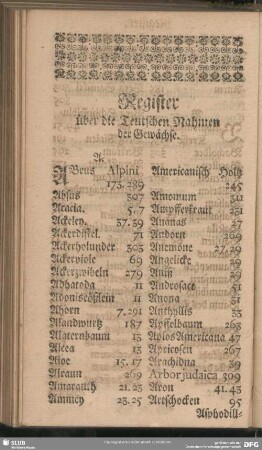 Register
über die Teutschen Nahmen
der Gewächse.
A.
ABrus Alpini
173. 289
Absus 307
Acacia. 5. 7
Ackelen. 37. 39
Ackerdistel. 71
Ackerholunder 303
Ackerviole 69
Ackerzwibeln 279
Adhatoda 11
Adonisrößlein 11
Ahorn 7. 291
Alandwurtz 187
Alaternbaum 13
Alcea 13
Aloe 15. 17
Alraun 269
Amaranth 21. 23
Ammey 23. 25
Americanisch Holtz
245
Amomum 311
Ampfferkraut 231
Ananas 27
Andorn 269
Anemone 27. 29
Angelicke 29
Aniß 39
Androsace 51
Anona 31
Anthyllis 33
Apffelbaum 263
Apios Americana 47
Apricosen 267
Arachidna 39
Arbor judaica 309
Aron 41. 43
Artschocken 95
Asphodill-
SLUB
DFG